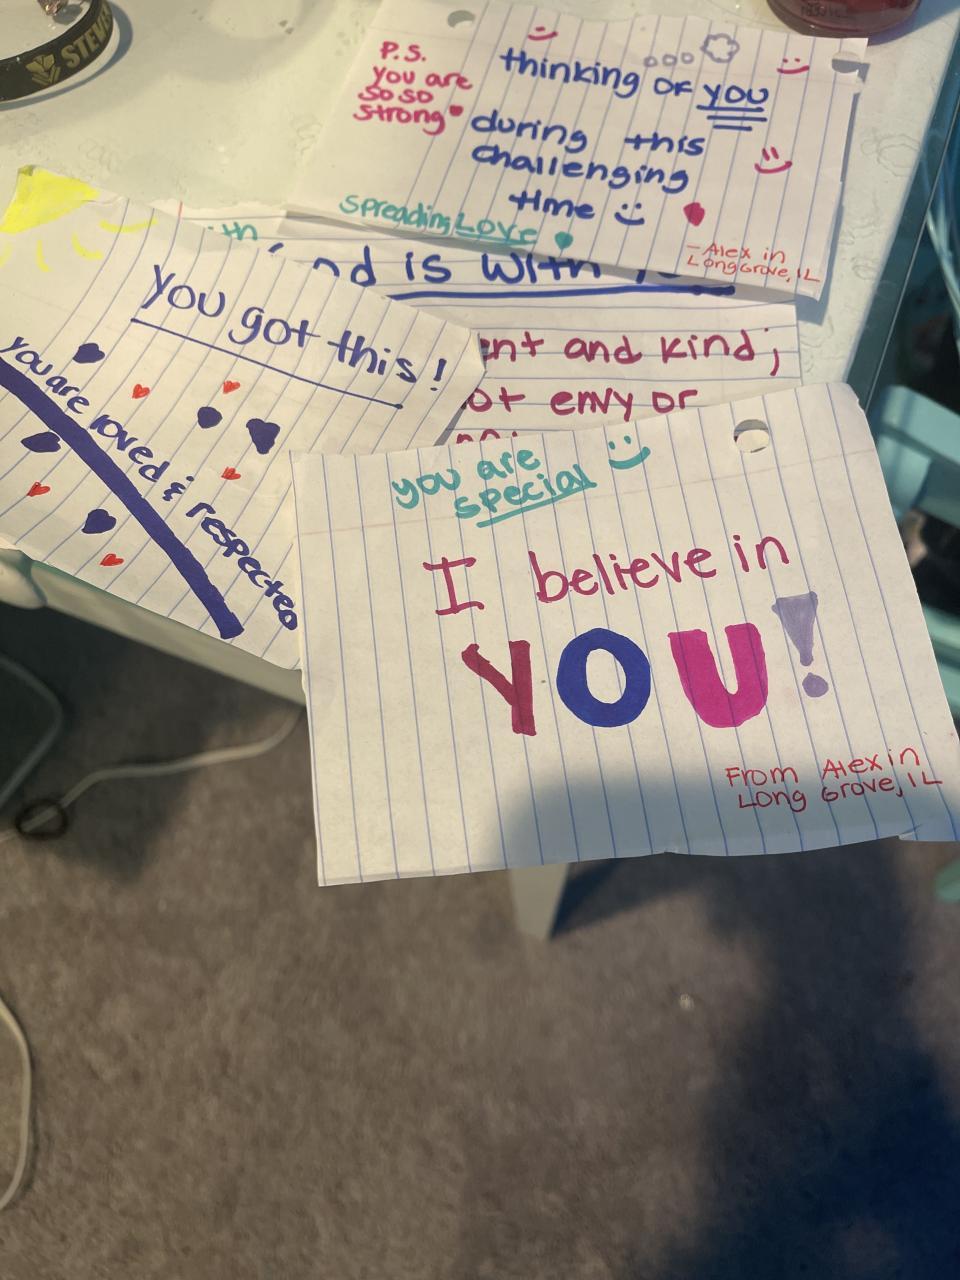 STEVE
P.S.
you are
so so
strong
thinking OF YOU
during this
challenging
time
Spreading LOVE
- Alex in
Long Grove, IL
is with
and kind;
envy or
You got this!
you are loved & respected
you are
special
I believe in
YOU!
From Alex in
Long Grove, IL